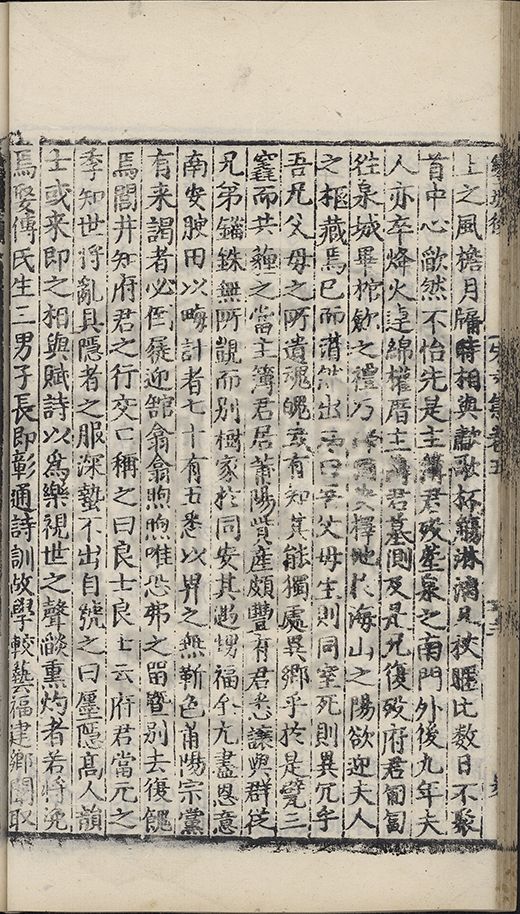 鑾坡後 宋文集卷五
上之風檐月牖時相與歡歌杯觴淋漓見杖屨比數日不聚
首中心歉然不怡先是主簿君歿塟泉之南門外後九年夫
人亦卒烽火連綿權厝主簿君墓側及是兄復歿府君匍匐
往泉城畢棺歛之禮乃擇地於海山之陽欲迎夫人
之柩藏焉已而潸然出曰父母生則同室死則異穴乎
吾兄父母之所遺魂魄或有知其能獨處異鄉乎於是甓三
竁而共薶之當主簿君居莆陽貲産頗豐有君悉讓與群從
兄弟錙銖無所覬而別樹家於同安其遇甥福尒尤盡恩意
南安腴田以畮計者七十有五悉以畀之無靳色莆陽宗黨
有来謁者必倒屣迎舘翕翕煦煦唯恐弗之留暫別去復餽
焉閭井知府君之行交口稱之曰良士良士云府君當元之
季知世将亂具隱者之服深蟄不出自號之曰壄隱髙人韻
士或来即之相與賦詩以為樂視世之聲燄熏灼者若将浼
焉娶傅氏生二男子長即彰通詩訓故學較藝福建鄉闈取